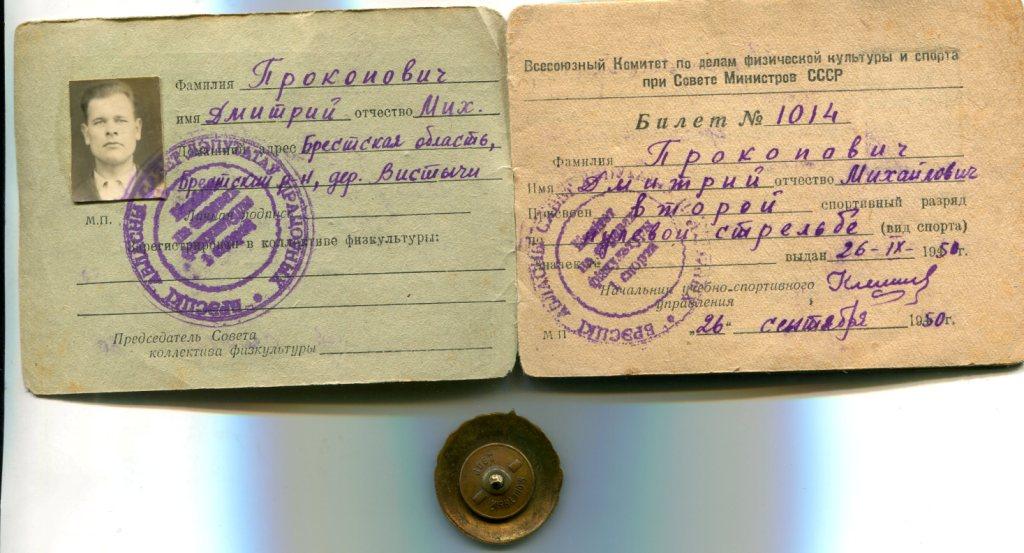 Фамилия Прокопович
имя Дмитрий отчество Мих.
адрес Брестская область,
Брестский р-н, дер. Вистычи
М.П. Личная подпись
Зарегистрирован в коллективе физкультуры:
Председатель Совета
коллектива физкультуры
Всесоюзный Комитет по делам физической культуры и спорта
при Совете Министров СССР
Билет № 1014
Фамилия Прокопович
Имя Дмитрий отчество Михайлович
Присвоен второй спортивный разряд
по пулевой стрельбе (вид спорта)
выдан 26-IX- 1950г.
Начальник учебно-спортивного
управления
М П „26“ сентября 1950г.